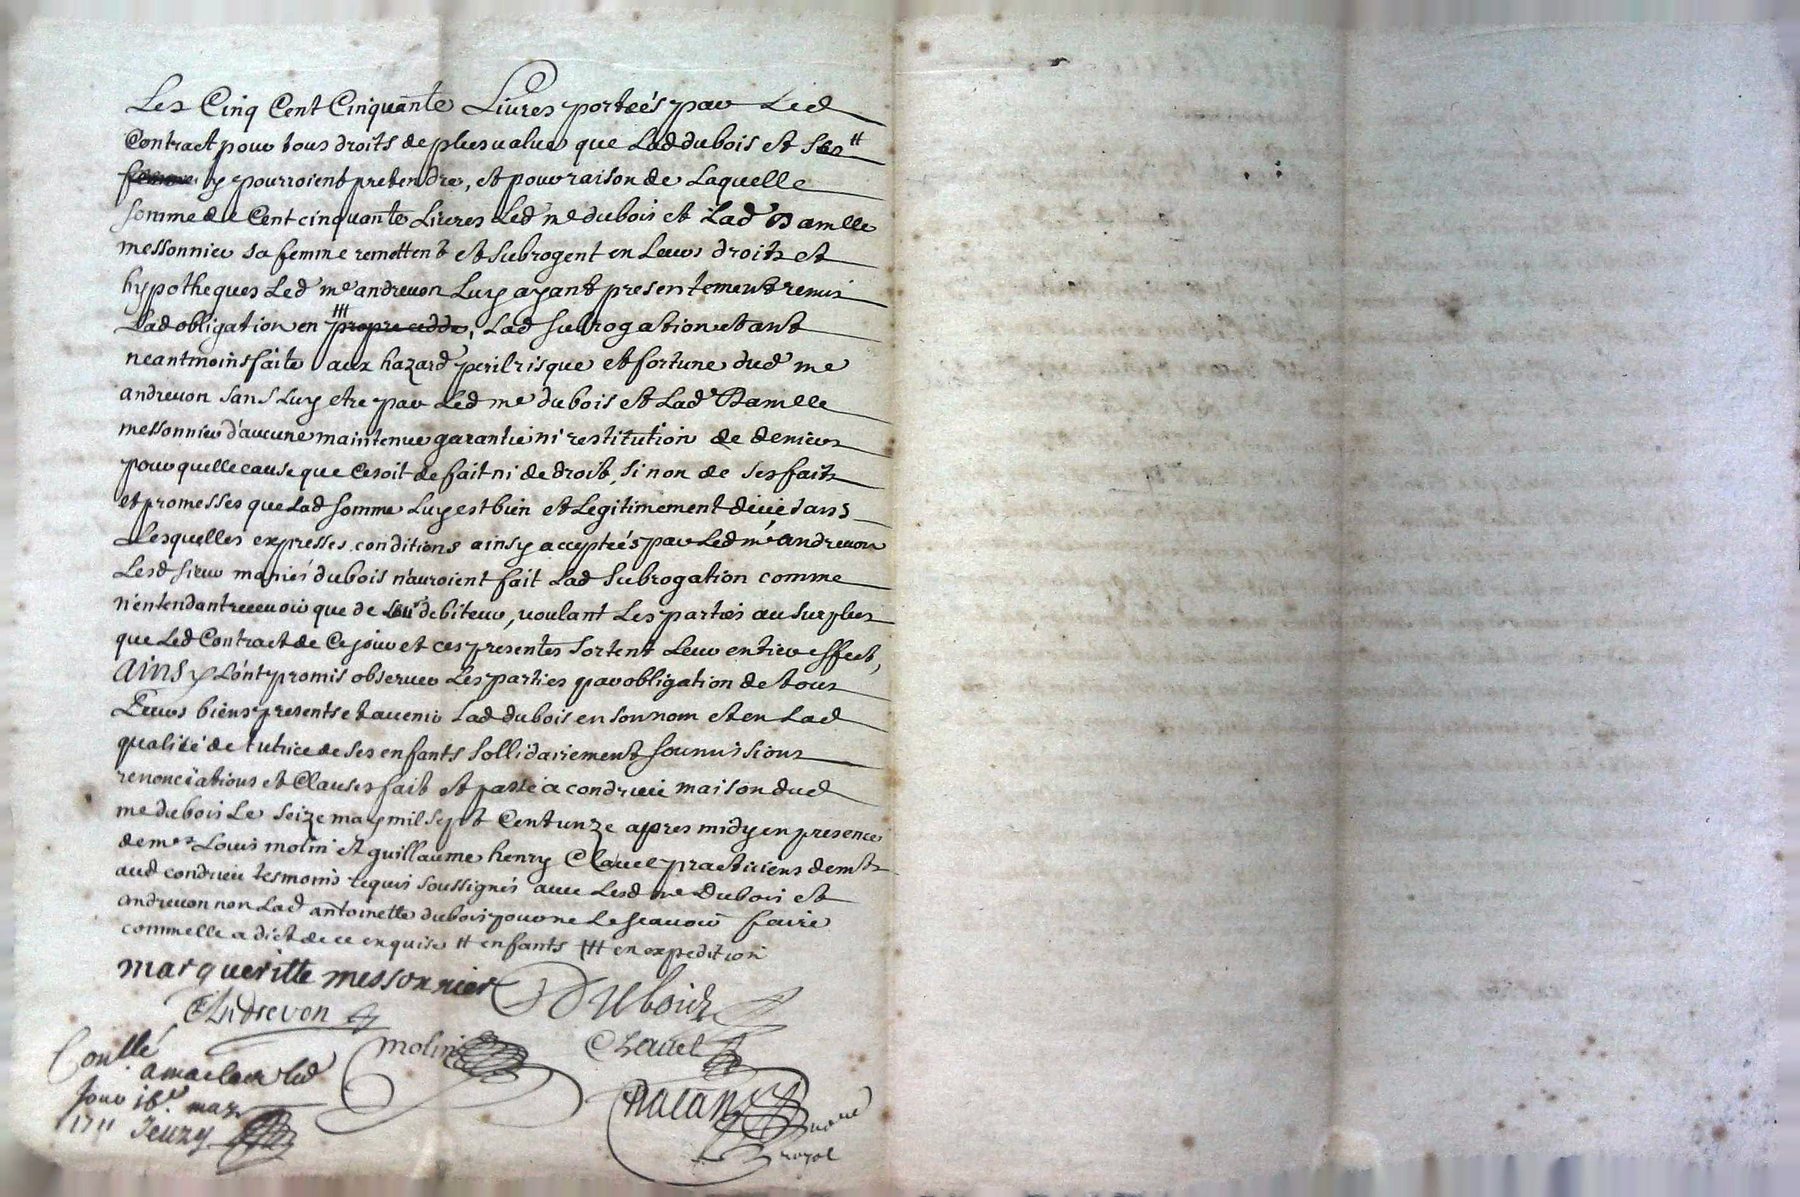 Les Cinq Cent Cinquante Livres portées par Led
Contract pour tous droits de plus values que Lad dubois et ses #
femme y pourroient pretendre, et pour raison de Laquelle
somme de Cent cinquante Livres Led me dubois et Lad Damlle
messonnier sa femme remettent et subrogent en Leurs droits et
hypotheques Led me andrevon Luy ayant presentement remis
Lad obligation en propre cedde, Lad subrogation etant
neantmoins faite aux hazard peril risque et fortune dud me
andrevon sans Luy etre par Led me dubois et Lad Damlle
messonnier d'aucune maintenue garantie ni restitution de deniers
pour quelle cause que ce soit de fait ni de droit, sinon de ses faits
et promesses que Lad somme Luy est bien et Legitimement deüe sans
Lesquelles expresses conditions ainsy acceptées par Led me andrevon
Lesd sieur mariés dubois n'auroient fait Lad subrogation comme
n'entendant recevoir que de Leur debiteur, voulant Les parties au surplus
que Led Contract de Ce jour et ces presentes sortent Leur entier effect,
Ainsy L'ont promis observer Les parties par obligation de tous
Leurs biens presents et avenir Lad dubois en son nom et en Lad
qualité de tutrice de ses enfants sollidairement soumissions
renonciations et Clauses fait et passé a condrieu maison dud
me dubois Le seize may mil sept Cent unze apres midy en presence
de mes Louis molin et guillaume henry Clavel practiciens demts
aud condrieu tesmoins requis soussignés avec Lesd me Dubois et
andrevon non Lad antoinette dubois pour ne Le scavoir faire
comme elle a dict de ce enquise # enfants ### en expedition
margueritte messonnier Dubois
Andrevon
molin Clavel
Con.llé
Led
jour 16e may
1711
royal